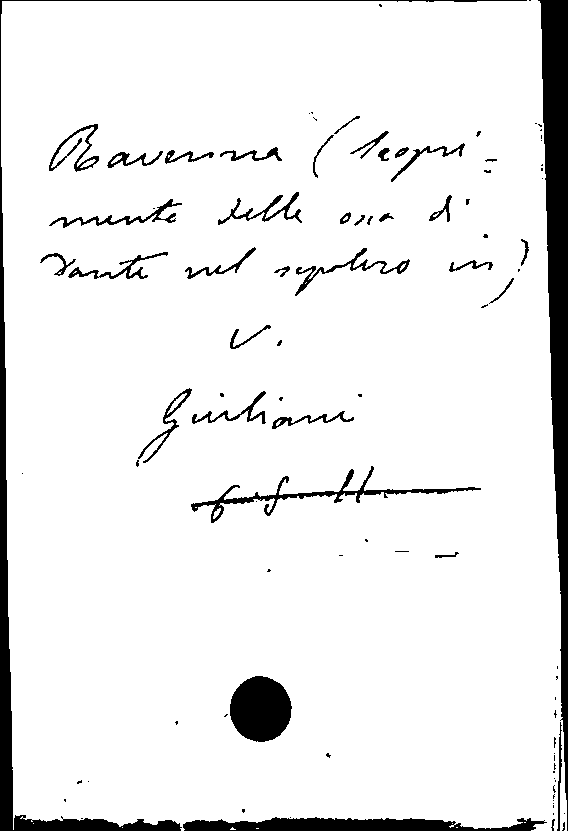 Ravenna (Scopri=
mento delle ossa di
Dante nel sepolcro in)
V.
Giuliani